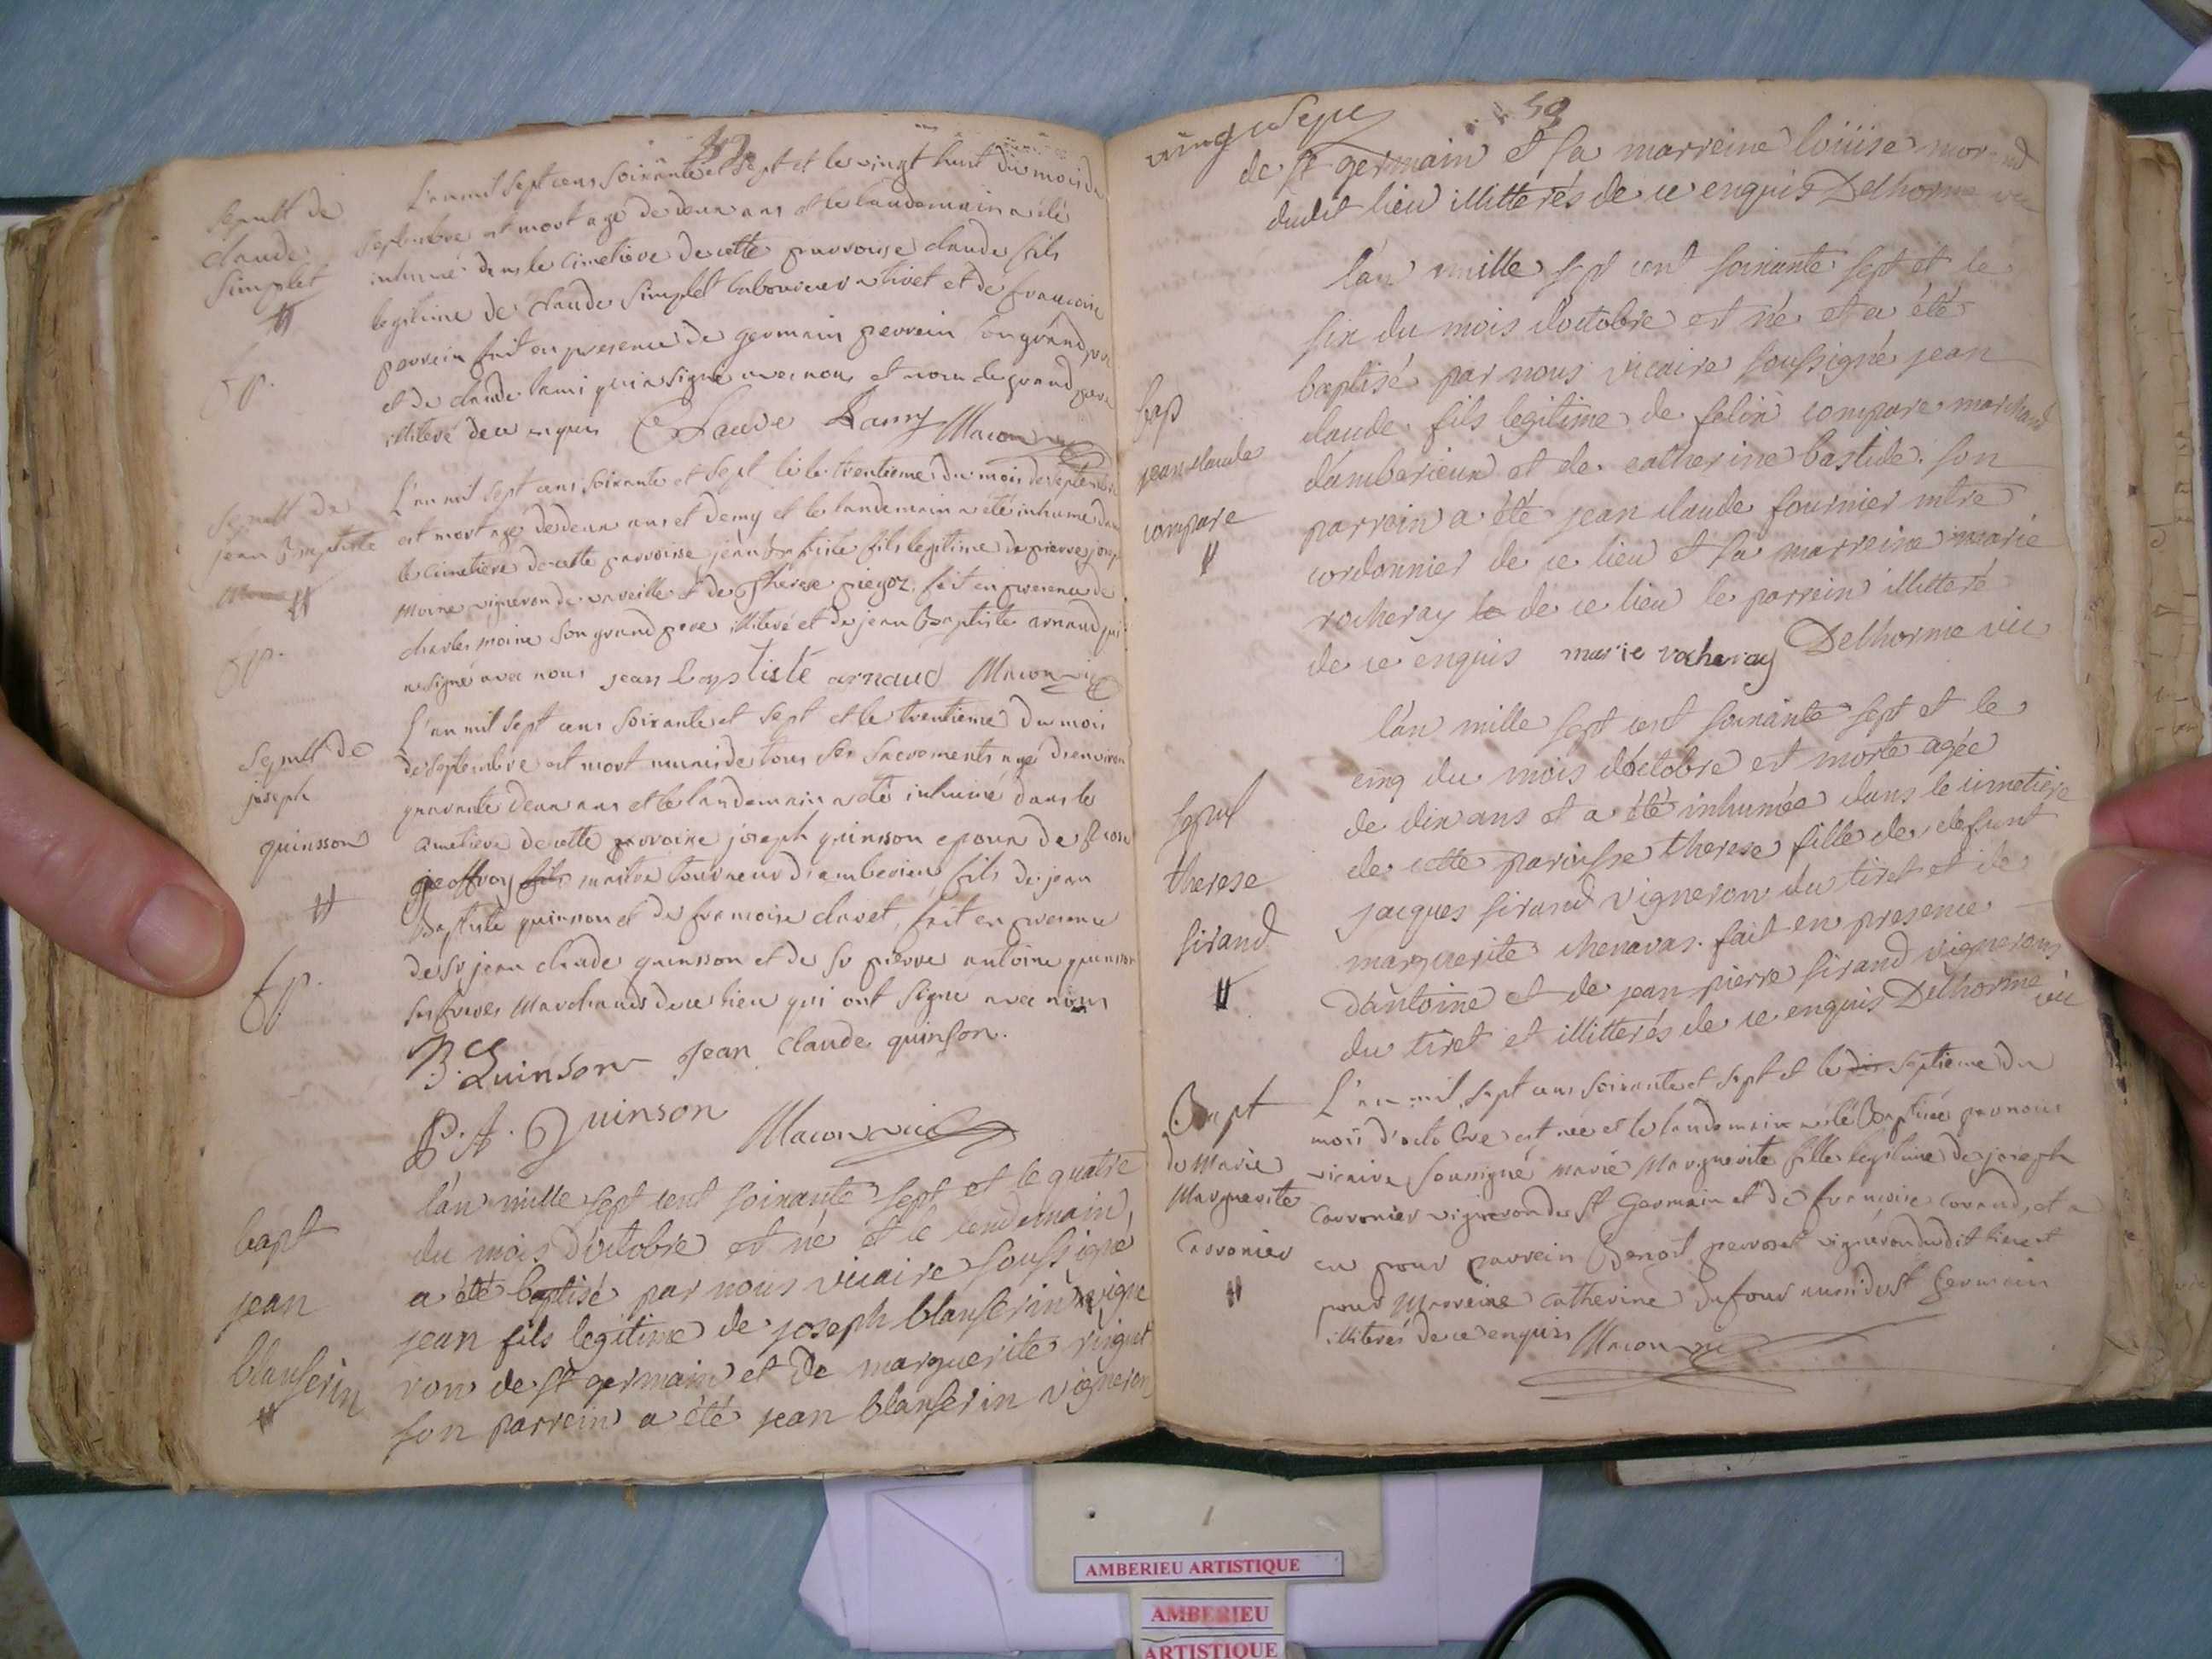 Sepult de
claude
Simplet
L'an mil sept cens soixante et sept et le vingt huit du mois de
septembre est mort agé de deux ans et le landemain a été
inhumé dans le cimetiere de cette parroisse claude fils
legitime de claude Simplet laboureur a tiret et de francoise
perrein fait en presence de germain perrein son grand pere
et de claude lami qui a signé avec nous et non le grand pere
illiteré de ce enquis Claude Lamy Macon vic
Sepult de
jean Baptiste
L'an mil sept cens soixante et sept et le trentieme du mois de septembre
est mort agé de deux ans et demy et le landemain a été inhumé dans
le cimetiere de cette parroisse jean Baptiste fils legitime de pierre joseph
Moine vigneron de vareille et de Therese piegoz. fait en presence de
charles moine son grand pere illiteré et de jean Baptiste arnaud qui
a signé avec nous jean baptiste arnaud Macon vic
Sepult de
joseph
quinsson
L'an mil sept cens soixante et sept et le trentieme du mois
de septembre est mort munis de tous ses sacrements agé d'environ
quarante deux ans et le landemain a été inhumé dans le
cimetiere de cette parroisse joseph quinsson epoux de
geoffroy fils maitre tourneur d'amberieu fils de jean
Baptiste quinsson et de francoise clavet, fait en presence
de sr jean claude quinsson et de sr pierre antoine quinsson
ses freres Marchands de ce lieu qui ont signé avec nous
B. Quinson Jean Claude quinson.
P. A. Quinson Macon vic
bapt
jean
blanserin
lan mille sept cent soixante sept et le quatre
du mois d'octobre est né et le lendemain
a été baptisé par nous vicaire soussigné
jean fils legitime de joseph blanserin vigne
ron de st germain et de marguerite
son parrein a été jean blanserin vigneron
vingt sept
59
de st germain et sa marreine loüise morand
dudit lieu illitterés de ce enquis Delhorme vic
bap
jean claude
compare
lan mille sept cent soixante sept et le
six du mois doctobre est né et a été
baptisé par nous vicaire soussigné jean
claude fils legitime de felix compare marchand
damberieux et de catherine bastide. son
parrein a été jean claude fournier mtre
cordonnier de ce lieu et sa marreine marie
rocheray le de ce lieu le parrein illitteré
de ce enquis marie rocheray Delhorme vic
sepul
therese
sirand
lan mille sept cent soixante sept et le
cinq du mois doctobre est morte agée
de dix ans et a été inhumée dans le cimetiere
de cette paroisse therese fille de deffunt
jacques sirand vigneron du tiret et de
marguerite chenavas. fait en presence
dantoine et de jean pierre sirand vignerons
du tiret et illitterés de ce enquis Delhorme vic
Bapt
de Marie
Marguerite
Carronier
L'an mil sept cens soixante et sept et le dix septieme du
mois d'octobre est née et le landemain a été Baptisée par nous
vicaire soussigné marie Marguerite fille legitime de joseph
Carronier vigneron de st Germain et de francoise morand, et a
eu pour parrein Benoit perroset vigneron dudit lieu et
pour Marreine Catherine Dufour aussi de st Germain
illiterés de ce enquis Macon vic
AMBERIEU ARTISTIQUE
AMBERIEU
ARTISTIQUE